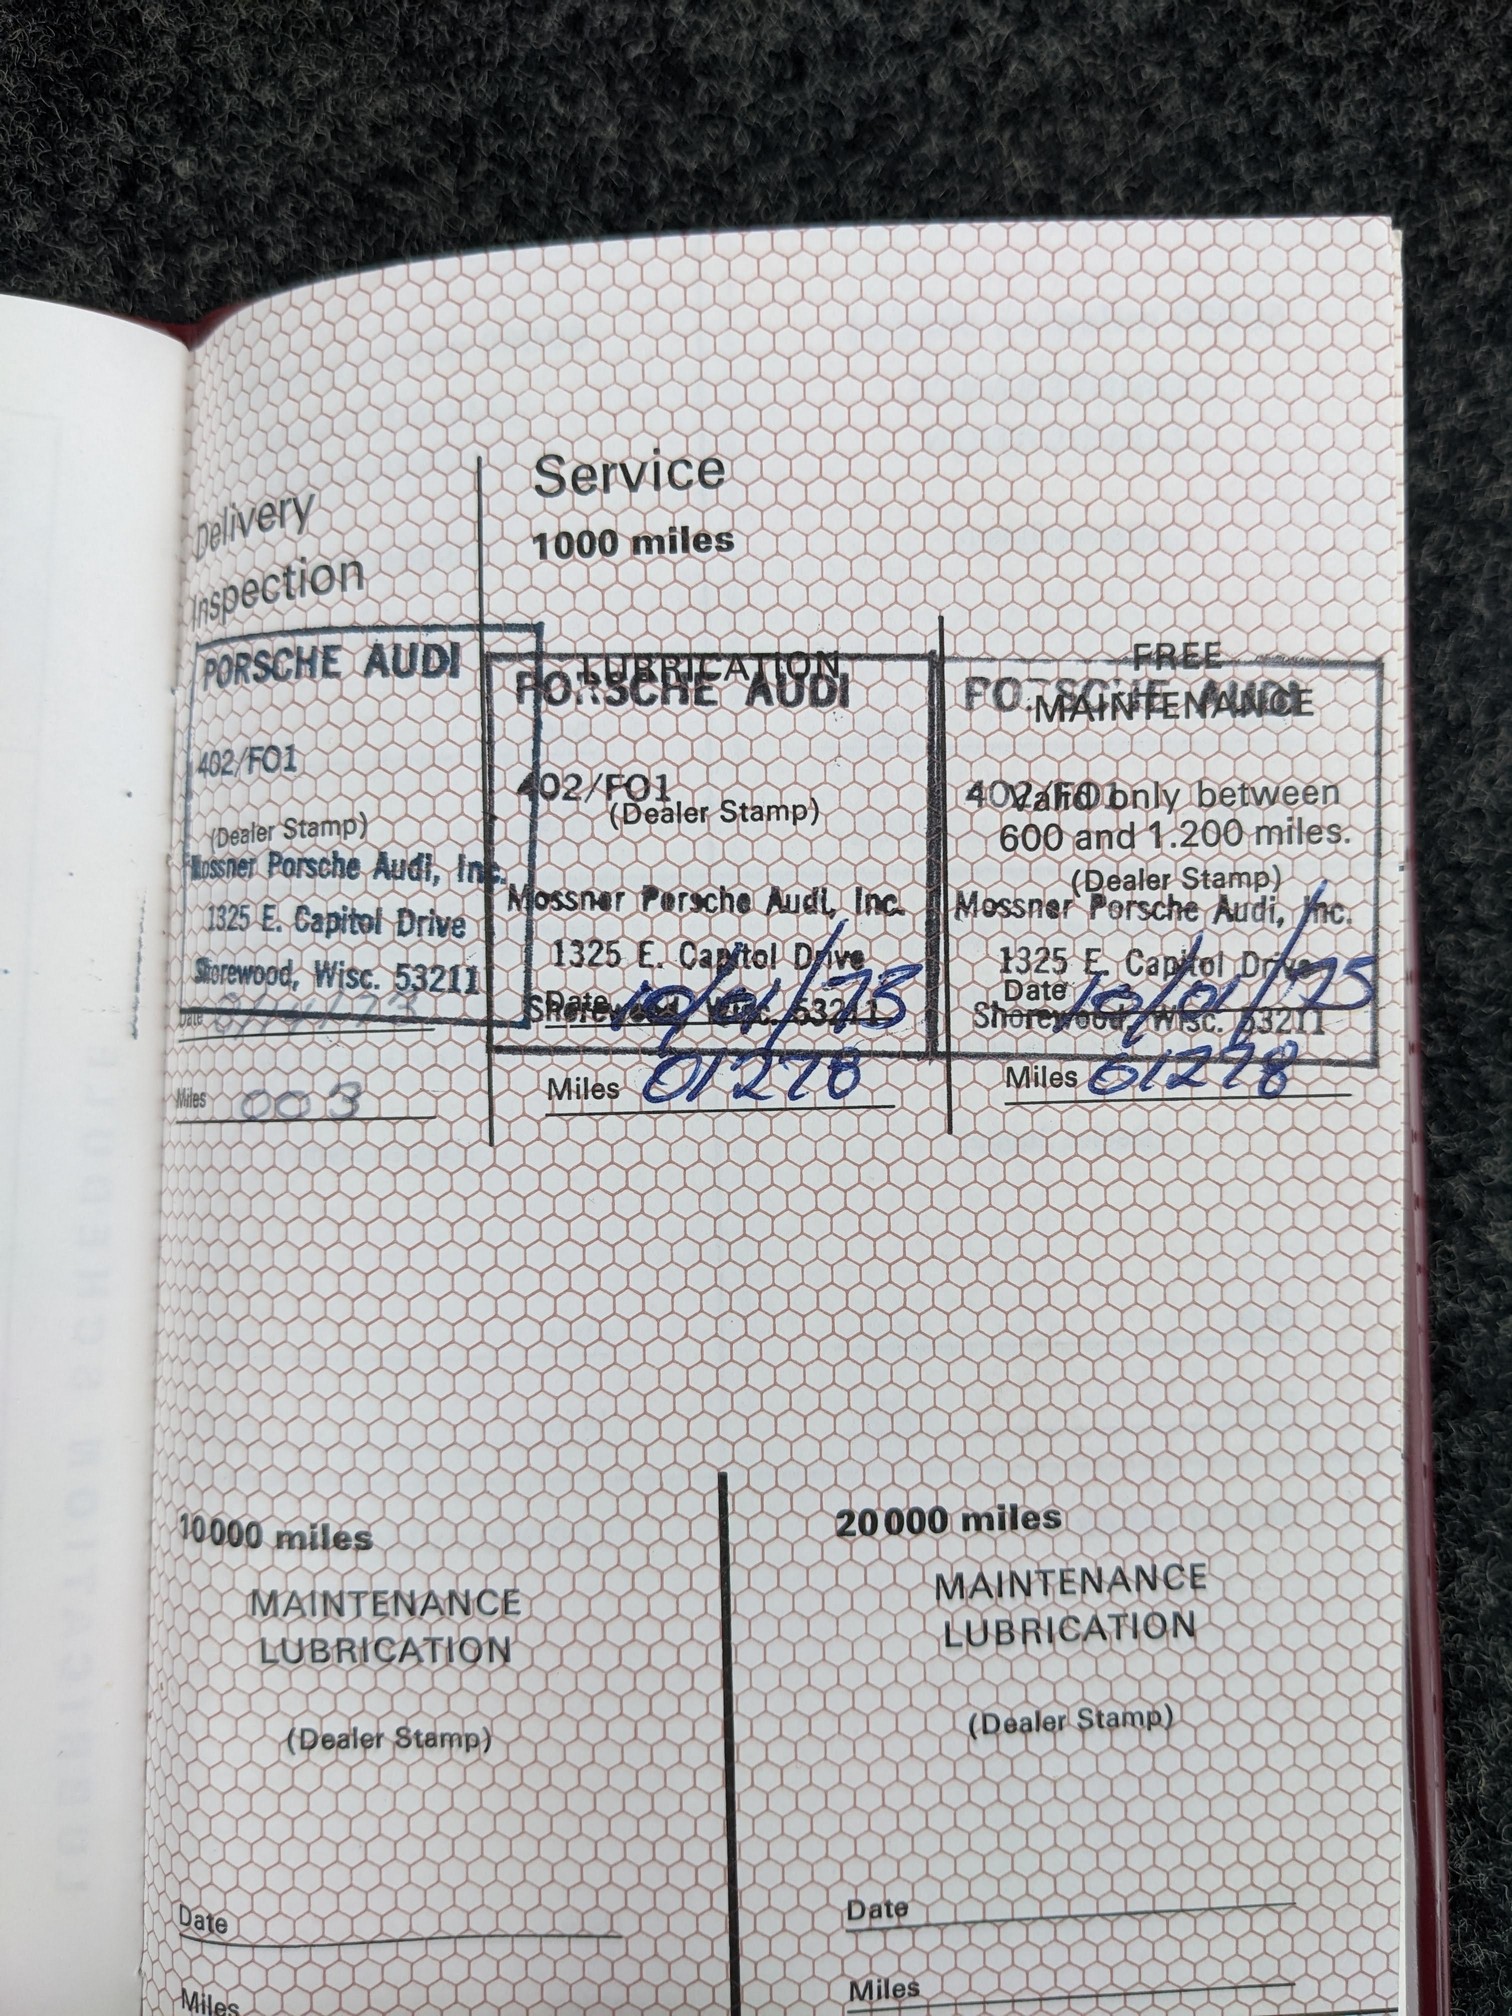 Delivery
Inspection
PORSCHE AUDI
402/FO1
(Dealer Stamp)
Mossner Porsche Audi, Inc.
1325 E. Capitol Drive
Shorewood, Wisc. 53211
Date
Miles 003
Service
1000 miles
LUBRICATION
PORSCHE AUDI
402/FO1
(Dealer Stamp)
Mossner Porsche Audi, Inc.
1325 E. Capitol Drive
Date 10/01/73
Shorewood, Wisc. 53211
Miles 01278
FREE
PORSCHE AUDI
MAINTENANCE
402/FO1
Valid only between
600 and 1.200 miles.
(Dealer Stamp)
Mossner Porsche Audi, Inc.
1325 E. Capitol Drive
Date 10/01/75
Shorewood, Wisc. 53211
Miles 01278
10000 miles
MAINTENANCE
LUBRICATION
(Dealer Stamp)
Date
Miles
20000 miles
MAINTENANCE
LUBRICATION
(Dealer Stamp)
Date
Miles